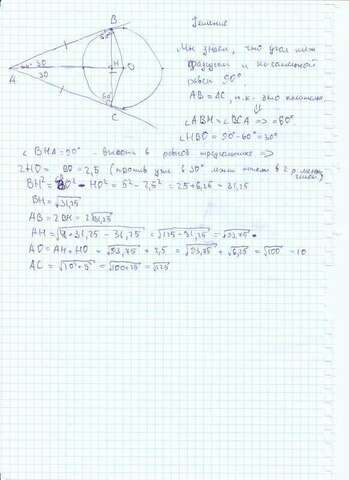 B
60°
A
60°
30
30
H
O
60°
C
Решение
Мы знаем, что угол меж
радиусом и касательной
равен 90°
AB = AC, т.к. это касательные
∠ABH = ∠BCA => = 60°
∠HBO = 90° - 60° = 30°
∠BHA = 90° - высота в равноб треугольнике =>
∠HO = = 2,5 (против угла в 30° лежит катет в 2 р. меньше
BH² = BO² - HO² = 5² - 2,5² = 25 + 6,25 = 31,25
BH = √31,25
AB = 2BH = 2√31,25
AH = √4 * 31,25 - 31,25 = √125 - 31,25 = √93,75
AO = AH + HO = √93,75 + 2,5 = √93,75 + √6,25 = √100 = 10
AC = √10² + 5² = √100 + 25 = √125